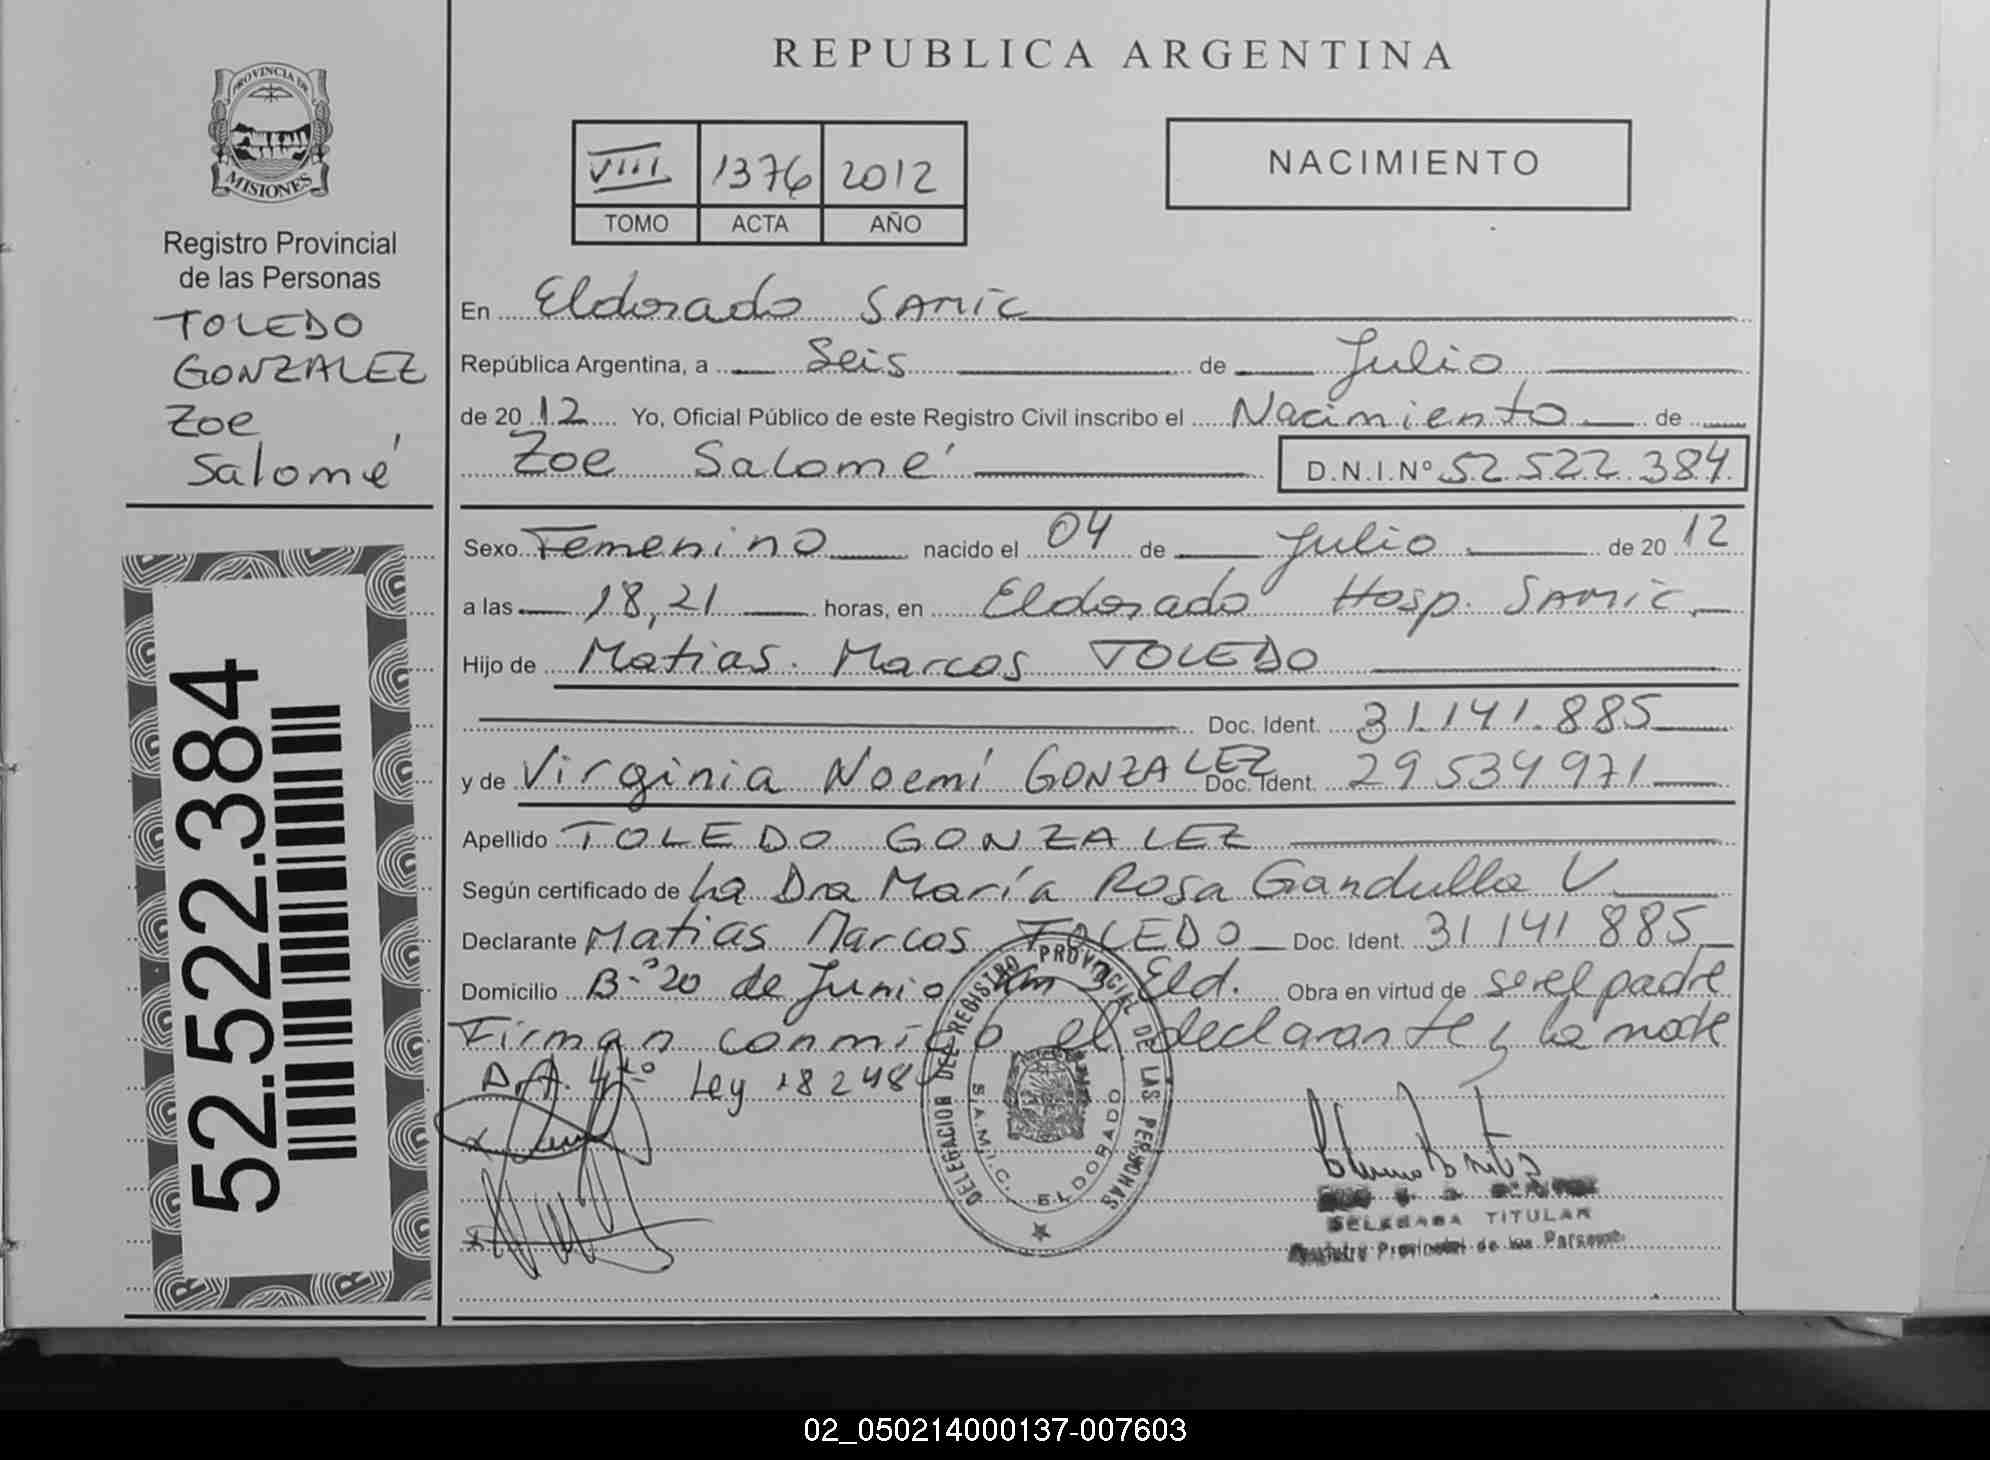 REPUBLICA ARGENTINA
PROVINCIA DE
MISIONES
Registro Provincial
de las Personas
TOLEDO
GONZALEZ
Zoe
Salomé
VIII 1376 2012
TOMO ACTA AÑO
NACIMIENTO
En Eldorado SAMIC
República Argentina, a Seis de Julio
de 2012 Yo, Oficial Público de este Registro Civil inscribo el Nacimiento de
Zoe Salomé D.N.I.Nº 52.522.384
Sexo Femenino nacido el 04 de Julio de 2012
a las 18,21 horas, en Eldorado Hosp. SAMIC
Hijo de Matias Marcos TOLEDO
Doc. Ident. 31.141.885
y de Virginia Noemí GONZALEZ Doc. Ident. 29 534 971
Apellido TOLEDO GONZALEZ
Según certificado de La Dra María Rosa Gandulla V
Declarante Matias Marcos TOLEDO Doc. Ident. 31 141 885
Domicilio B-º 20 de Junio Km 3 Eld. Obra en virtud de ser el padre
Firman conmigo el declarante y la madre
Art. 4to Ley 18248
52.522.384
DELEGACION DEL REGISTRO PROVINCIAL DE LAS PERSONAS
S.A.M.I.C. ELDORADO
DELEGADA TITULAR
Registro Provincial de las Personas
02_050214000137-007603